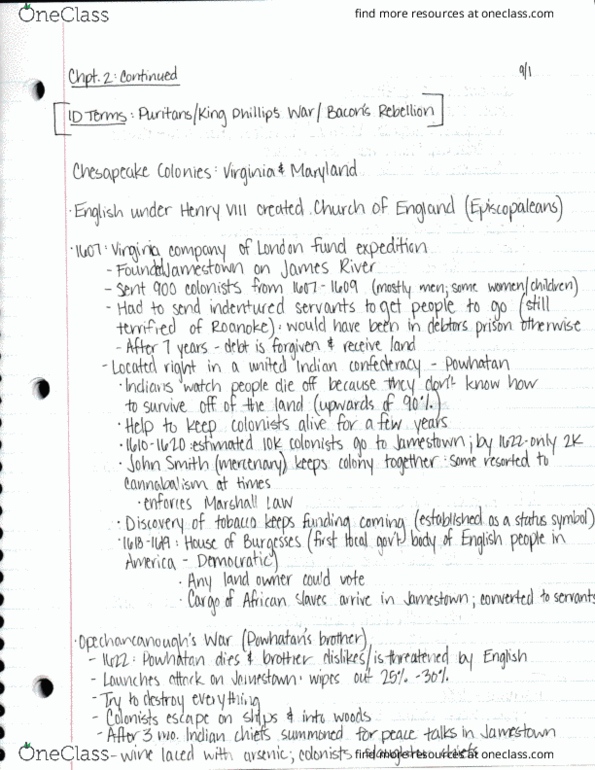 OneClass
find more resources at oneclass.com
Chpt. 2: Continued
9/1
[ID Terms: Puritans/King Phillip's War/ Bacon's Rebellion]
Chesapeake Colonies: Virginia & Maryland
· English under Henry VIII created Church of England (Episcopaleans)
· 1607: Virginia company of London fund expedition
- Found Jamestown on James River
- Sent 900 colonists from 1607-1609 (mostly men; some women/children)
- Had to send indentured servants to get people to go (still
terrified of Roanoke) · would have been in debtors prison otherwise
- After 7 years - debt is forgiven & receive land
- Located right in a united Indian confederacy - Powhatan
· Indians watch people die off because they don't know how
to survive off of the land (upwards of 90%)
· Help to keep colonists alive for a few years
· 1610-1620: estimated 10K colonists go to Jamestown; by 1622-only 2K
· John Smith (mercenary) keeps colony together · some resorted to
cannabalism at times
· enforces Marshall Law
· Discovery of tobacco keeps funding coming (established as a status symbol)
· 1618-1619: House of Burgesses (first local gov't body of English people in
America - Democratic)
· Any land owner could vote
· Cargo of African slaves arrive in Jamestown; converted to servants
· Opechancanough's War (Powhatan's brother)
- 1622: Powhatan dies & brother dislikes/is threatened by English
- Launches attack on Jamestown · wipes out 25%-30%
- Try to destroy everything
- Colonists escape on ships & into woods
- After 3 mo. Indian chiefs summoned for peace talks in Jamestown
OneClass
- wine laced with arsenic; colonists
find more resources at oneclass.com